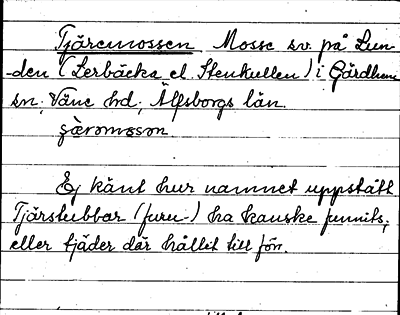 Tjäremossen Mosse sv. på Lun-
den (Lerbäcka el. Stenkullen) i Gärdhems
sn; Väne hd; Älfsborgs län.
Ej känt hur namnet uppstått
Tjärstubbar (furu-) ha kanske funnits,
eller tjäder där hållit till förr.